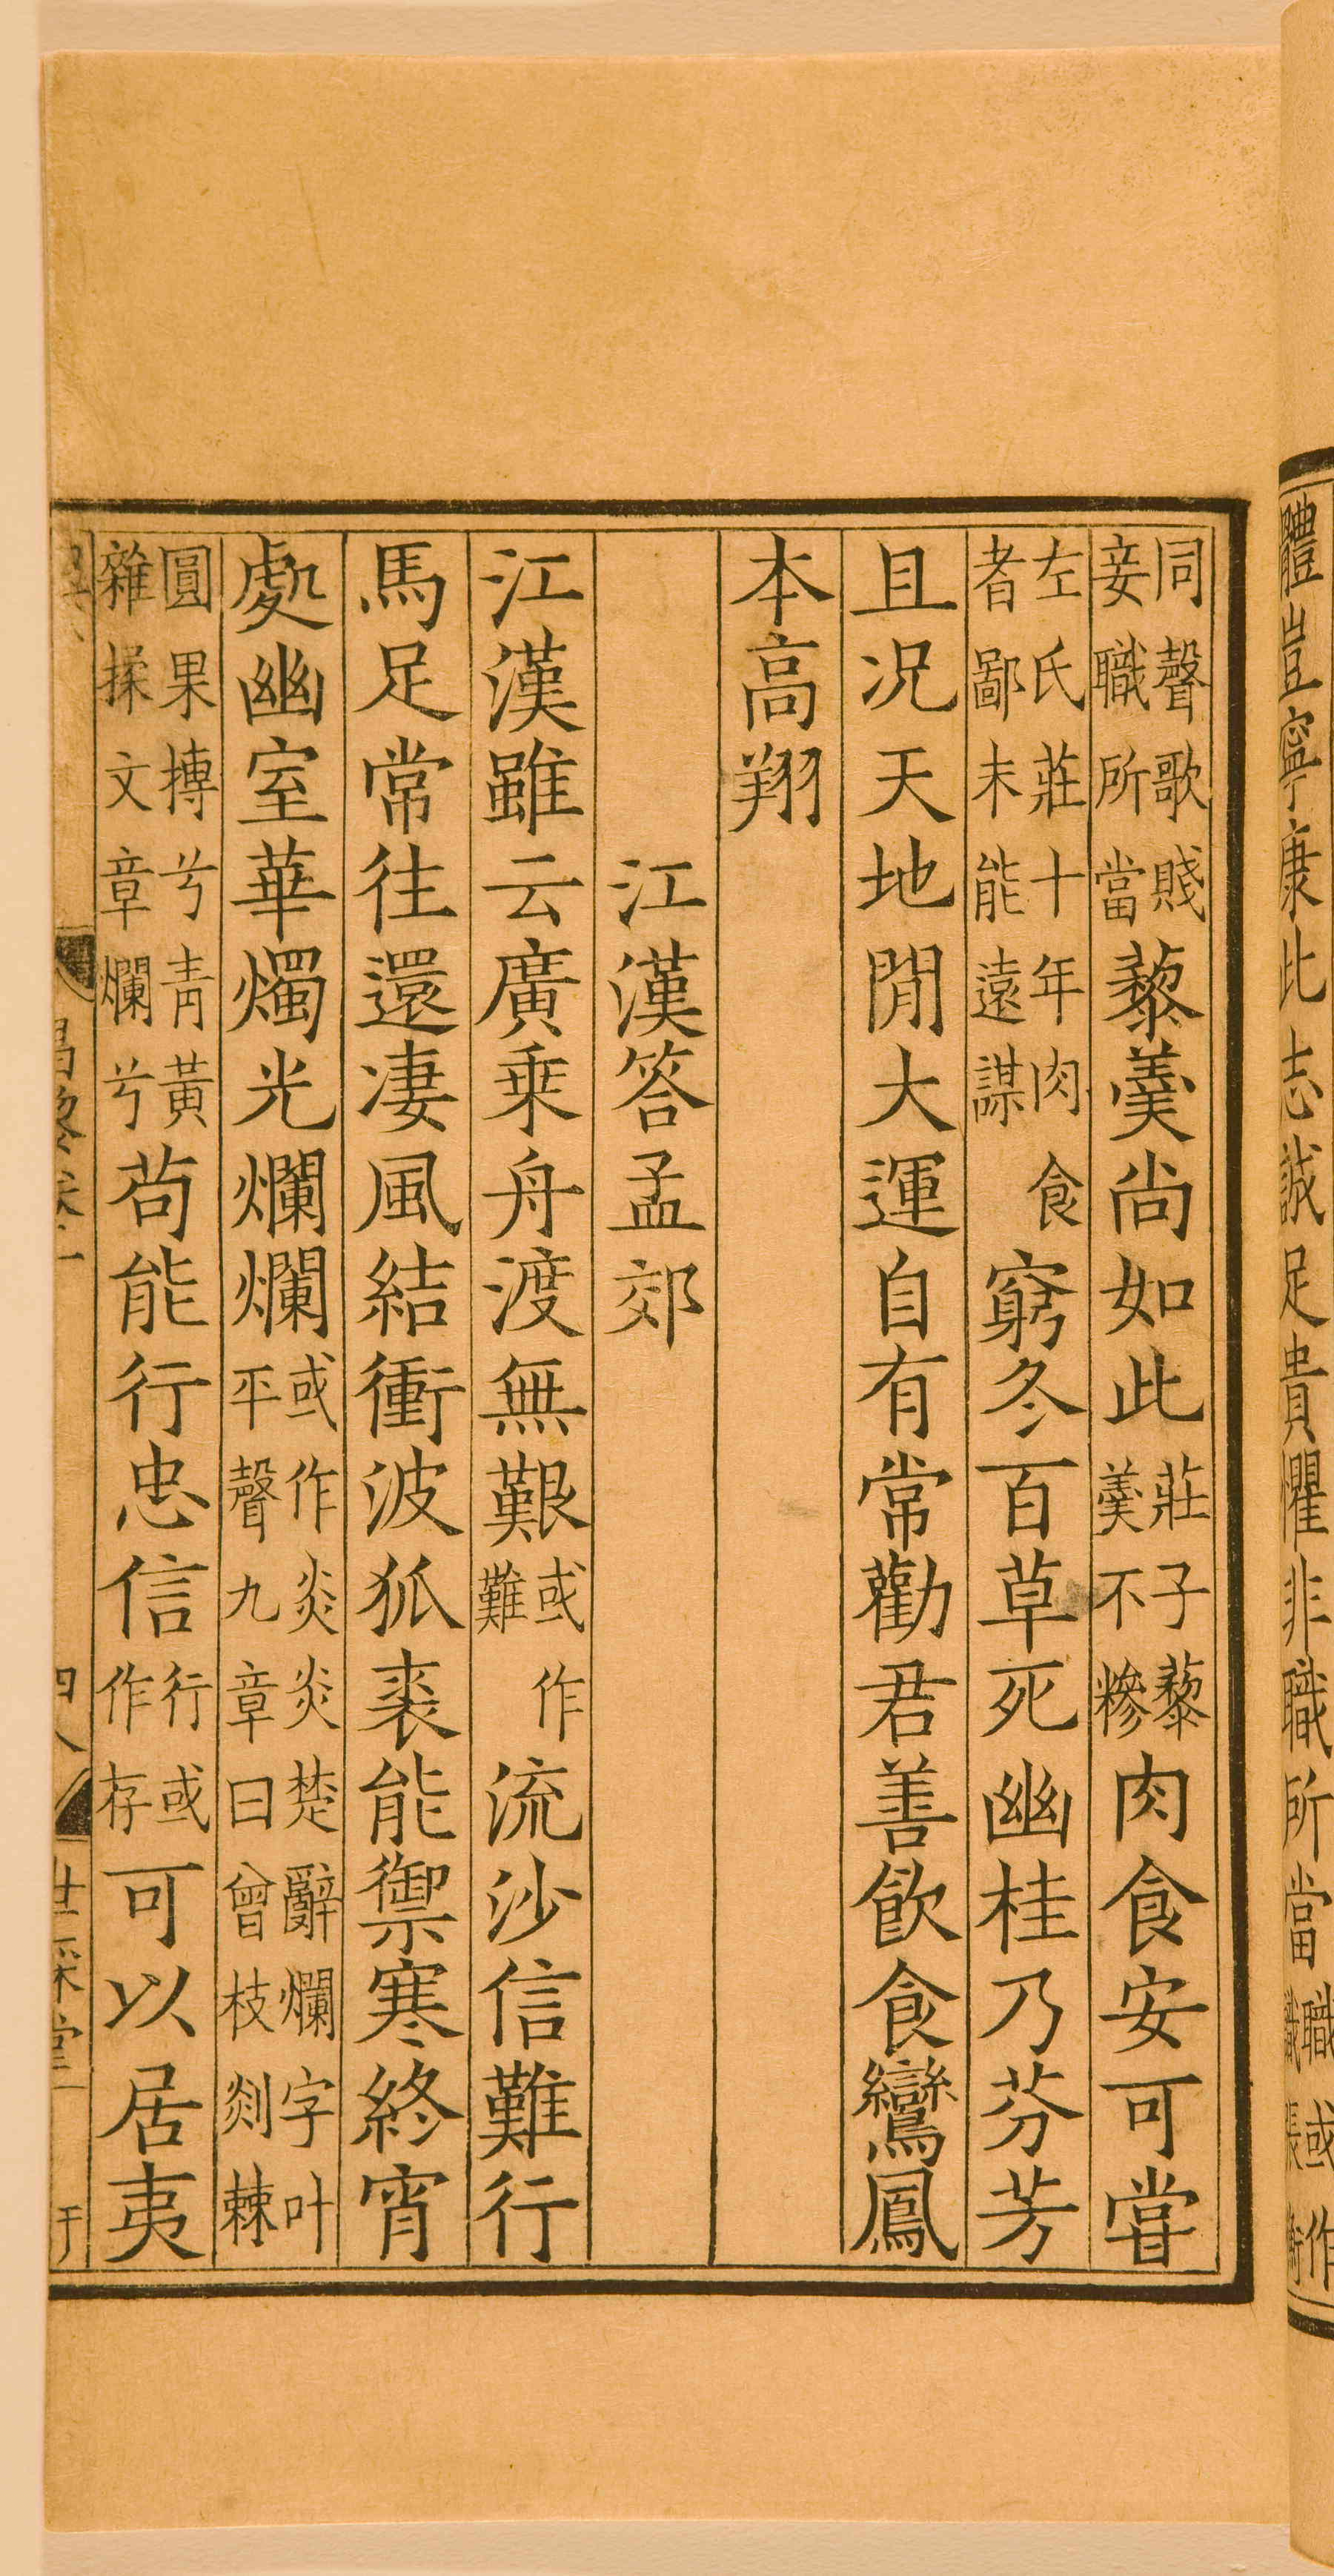 體豈寧康此志誠足貴懼非職所當職或作
同聲歌賤妾職所當藜羹尚如此莊子藜羹不糝肉食安可嘗
左氏莊十年肉食者鄙未能遠謀窮冬百草死幽桂乃芬芳
且况天地閒大運自有常勸君善飲食鸞鳳
本高翔
江漢答孟郊
江漢雖云廣乗舟渡無艱或作難流沙信難行
馬足常往還凄風結衝波狐裘能禦寒終宵
處幽室華燭光爛爛或作炎炎楚辭爛字叶平聲九章曰曾枝剡棘
圓果摶兮青黃雜揉文章爛兮苟能行忠信行或作存可以居夷